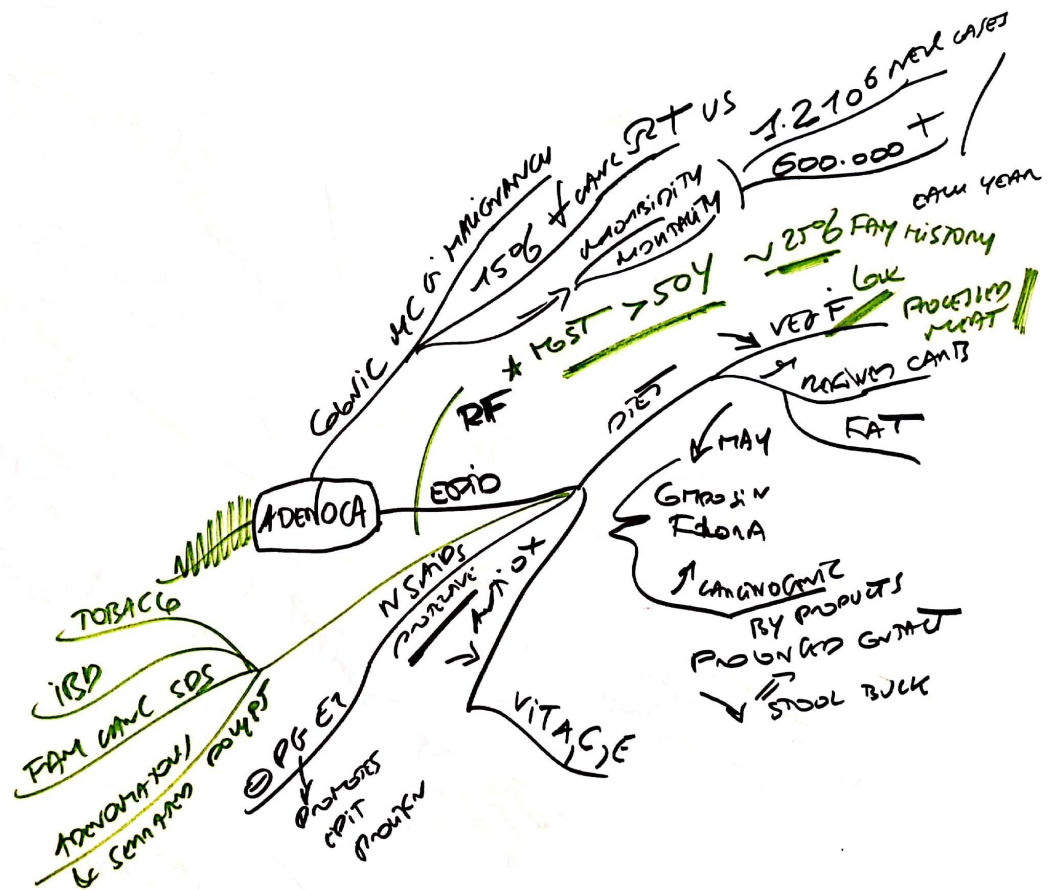 COLONIC MC Gi MALIGNANCY
15% of CANC RT US
MORBIDITY
MORTALITY
1.2 10⁶ NEW CASES
600.000 +
EACH YEAR
* MOST > 50Y
~ 25% FAM HISTORY
RF
ADENOCA
EPiD
DiET
→ VEG F
LOW
PROCESSED
MEAT
REFINED CARB
FAT
MAY
FLORA
↑ CARCINOGENIC
BY PRODUCTS
PROLONGED CONTACT
STOOL BULK
NSAiDS
PROTECTIVE
ANTiOX
ViT A, C, E
⊖ PG E2
PROMOTES
EPiT
PROLIFN
TOBACCO
iBD
FAM CANC SDS
ADENOMATOUS/
& SERRATED POLYPS